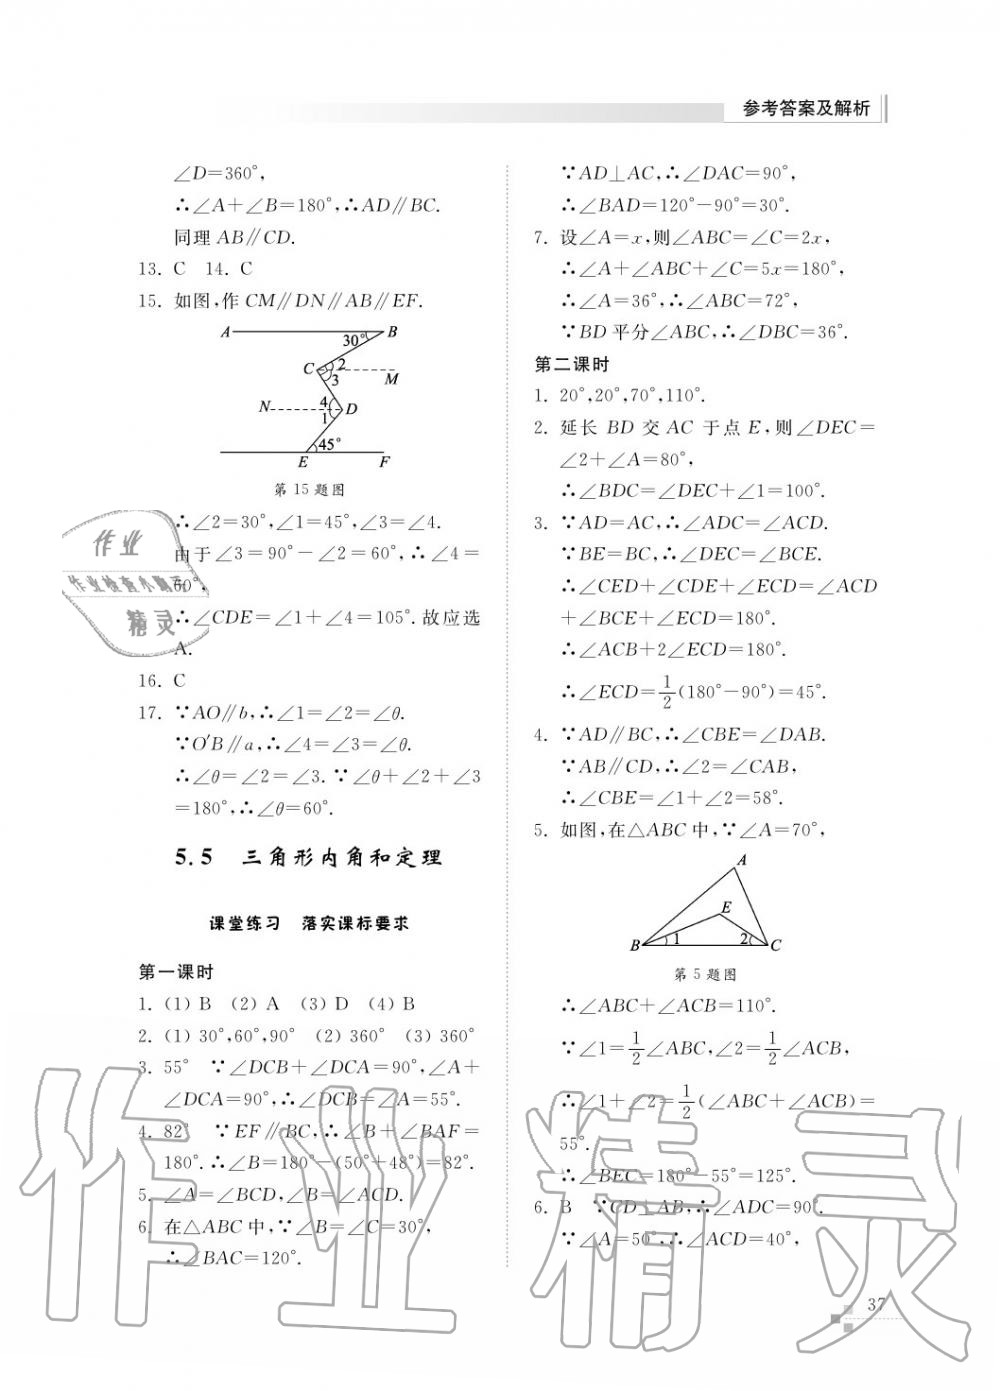 参考答案及解析
∠D=360°,
∴∠A+∠B=180°,∴AD∥BC.
同理 AB∥CD.
13. C 14. C
15. 如图,作 CM∥DN∥AB∥EF.
A B
30°
C 2
3 M
N 4
1 D
45°
E F
第 15 题图
∴∠2=30°,∠1=45°,∠3=∠4.
由于∠3=90°-∠2=60°,∴∠4=
60°,
∴∠CDE=∠1+∠4=105°.故应选
A.
16. C
17. ∵AO∥b,∴∠1=∠2=∠θ.
∵O′B∥a,∴∠4=∠3=∠θ.
∴∠θ=∠2=∠3.∵∠θ+∠2+∠3
=180°,∴∠θ=60°.
5.5 三角形内角和定理
课堂练习 落实课标要求
第一课时
1. (1) B (2) A (3) D (4) B
2. (1) 30°,60°,90° (2) 360° (3) 360°
3. 55° ∵∠DCB+∠DCA=90°,∠A+
∠DCA=90°,∴∠DCB=∠A=55°.
4. 82° ∵EF∥BC,∴∠B+∠BAF=
180°.∴∠B=180°-(50°+48°)=82°.
5. ∠A=∠BCD,∠B=∠ACD.
6. 在△ABC中,∵∠B=∠C=30°,
∴∠BAC=120°.
∵AD⊥AC,∴∠DAC=90°,
∴∠BAD=120°-90°=30°.
7. 设∠A=x,则∠ABC=∠C=2x,
∴∠A+∠ABC+∠C=5x=180°,
∴∠A=36°,∴∠ABC=72°,
∵BD平分∠ABC,∴∠DBC=36°.
第二课时
1. 20°,20°,70°,110°.
2. 延长 BD 交 AC 于点 E,则∠DEC=
∠2+∠A=80°,
∴∠BDC=∠DEC+∠1=100°.
3. ∵AD=AC,∴∠ADC=∠ACD.
∵BE=BC,∴∠DEC=∠BCE.
∴∠CED+∠CDE+∠ECD=∠ACD
+∠BCE+∠ECD=180°.
∴∠ACB+2∠ECD=180°.
∴∠ECD=1/2(180°-90°)=45°.
4. ∵AD∥BC,∴∠CBE=∠DAB.
∵AB∥CD,∴∠2=∠CAB,
∴∠CBE=∠1+∠2=58°.
5. 如图,在△ABC中,∵∠A=70°,
A
E
B 1 2 C
第 5 题图
∴∠ABC+∠ACB=110°.
∵∠1=1/2∠ABC,∠2=1/2∠ACB,
∴∠1+∠2=1/2(∠ABC+∠ACB)=
55°.
∴∠BEC=180°-55°=125°.
6. B ∵CD⊥AB,∴∠ADC=90°.
∵∠A=50°,∴∠ACD=40°,
37
作业
作业检查小帮手
精灵
作业精灵